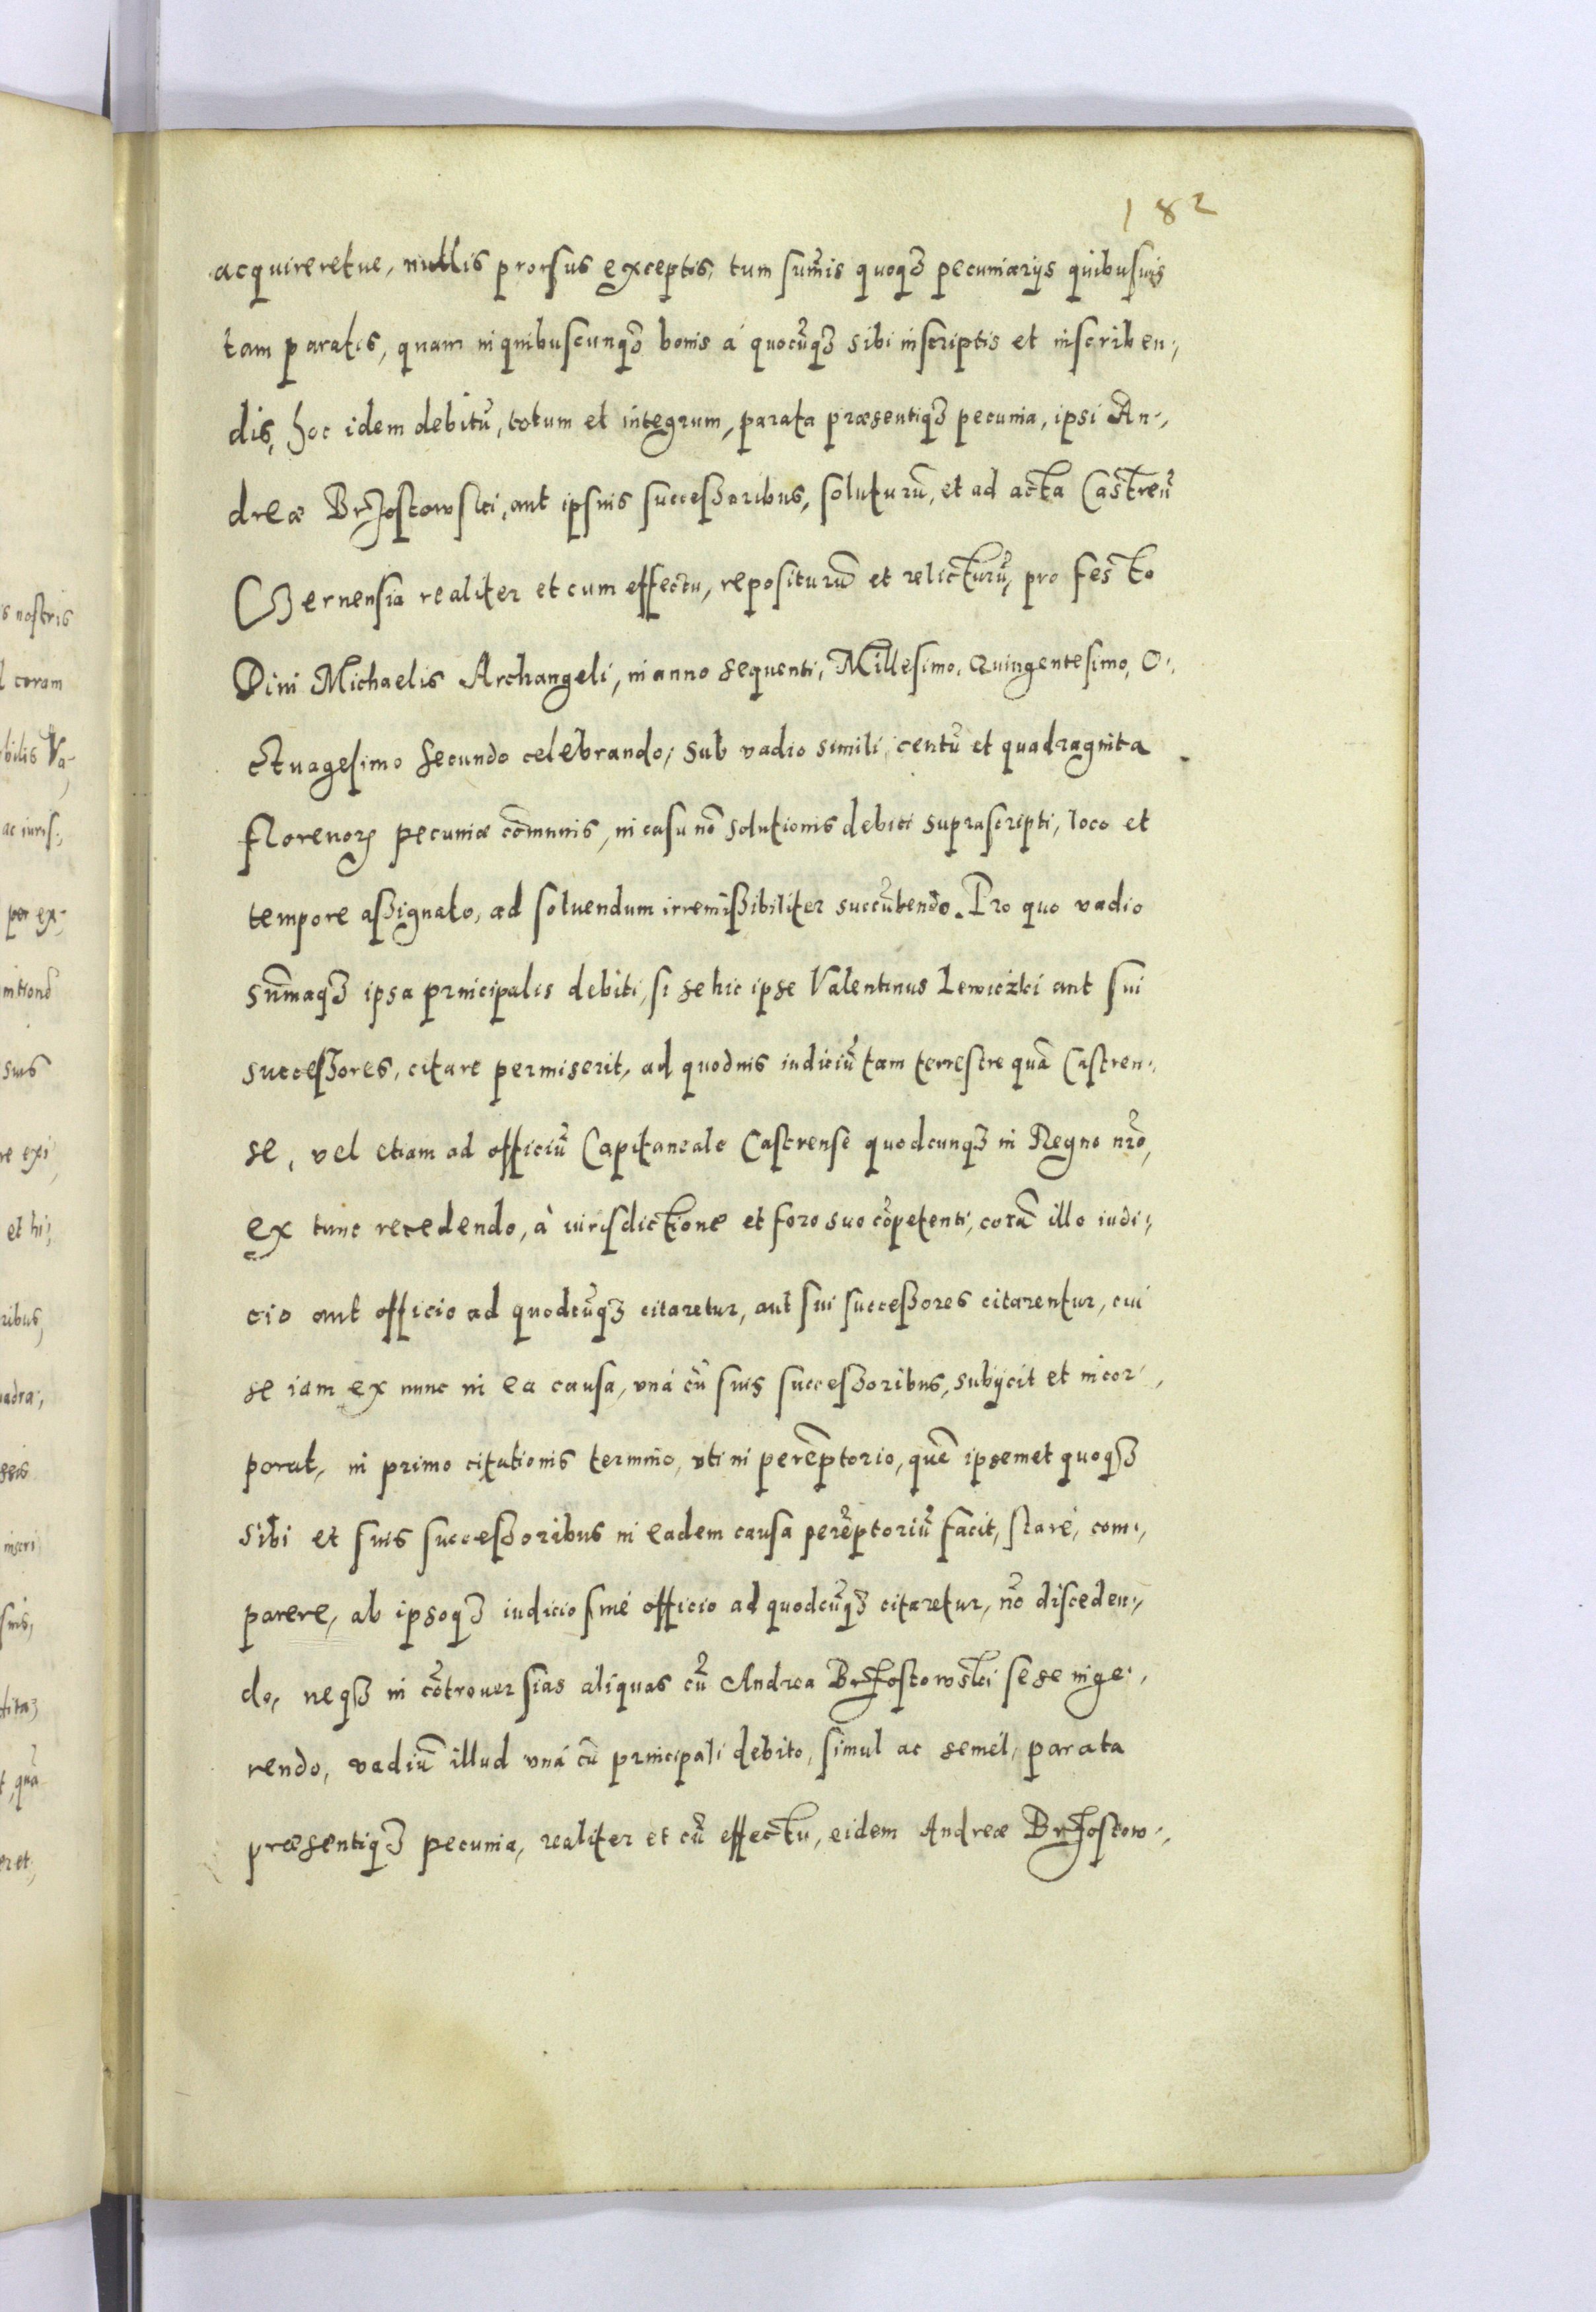 182
acquireretve, nullis prorsus exceptis, tum sum̃is quoq₃ pecuniarijs quibusuis
tam paratis, quam in quibuscunq₃ bonis á quocũq₃ sibi inscriptis et inscriben:,
dis, hoc idem debitũ, totum et integrum, parata præsentiq₃ pecunia, ipsi An:,
dreæ Brzostowski, aut ipsius successoribus, soluturũ, et ad acta Castreñ
Czernensia realiter et cum effectu, repositurũ et relicturũ, pro festo
Diui Michaelis Archangeli, in anno sequenti, Millesimo, Quingentesimo, O:,
ctuagesimo secundo celebrando, sub vadio simili, centũ et quadraginta
florenoꝝ pecuniæ com̃unis, in casu nõ solutionis debiti suprascripti, loco et
tempore assignato, ad soluendum irremissibiliter succũbendo. Pro quo vadio
sum̃aq₃ ipsa principalis debiti, si se hic ipse Valentinus Lewiczki aut sui
successores, citare permiserit, ad quoduis iudiciũ tam terrestre quã Castren:,
se, vel etiam ad officiũ Capitaneale Castrense quodcunq₃ in Regno nr̃o,
ex tunc recedendo, à iurisdictione et foro suo cõpetenti, corã illo iudi:,
cio aut officio ad quodcũq₃ citaretur, aut sui successores citarentur, cui
se iam ex nunc in ea causa, vná cũ suis successoribus, subijcit et incor:,
porat, in primo citationis termino, vti in perẽptorio, quẽ ipsemet quoq₃
sibi et suis successoribus in eadem causa perẽptoriũ facit, stare, com:,
parere, ab ipsoq₃ iudicio siué officio ad quodcũq₃ citaretur, nõ disceden:,
do, neq₃ in cõtrouersias aliquas cũ Andrea Brzostowski sese inge:,
rendo, vadiũ illud vná cũ principali debito, simul ac semel, parata
præsentiq₃ pecunia, realiter et cũ effectu, eidem Andreæ Brzostow:,